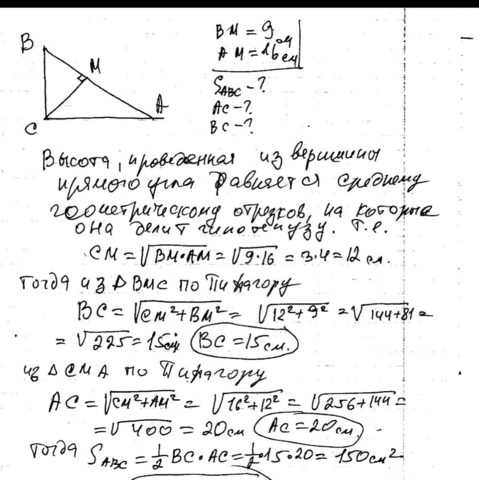 B
M
C
A
BM = 9 см
AM = 16 см
S_ABC - ?
AC - ?
BC - ?
Высота, проведенная из вершины
прямого угла равняется среднему
геометрическому отрезков, на которые
она делит гипотенузу. Т.е.
CM = √BM·AM = √9·16 = 3·4 = 12 см.
Тогда из △ BMC по Пифагору
BC = √CM²+BM² = √12²+9² = √144+81 =
= √225 = 15 см BC = 15 см.
из △ CMA по Пифагору
AC = √CM²+AM² = √16²+12² = √256+144 =
= √400 = 20 см AC = 20 см.
Тогда S_ABC = 1/2 BC·AC = 1/2·15·20 = 150 см²